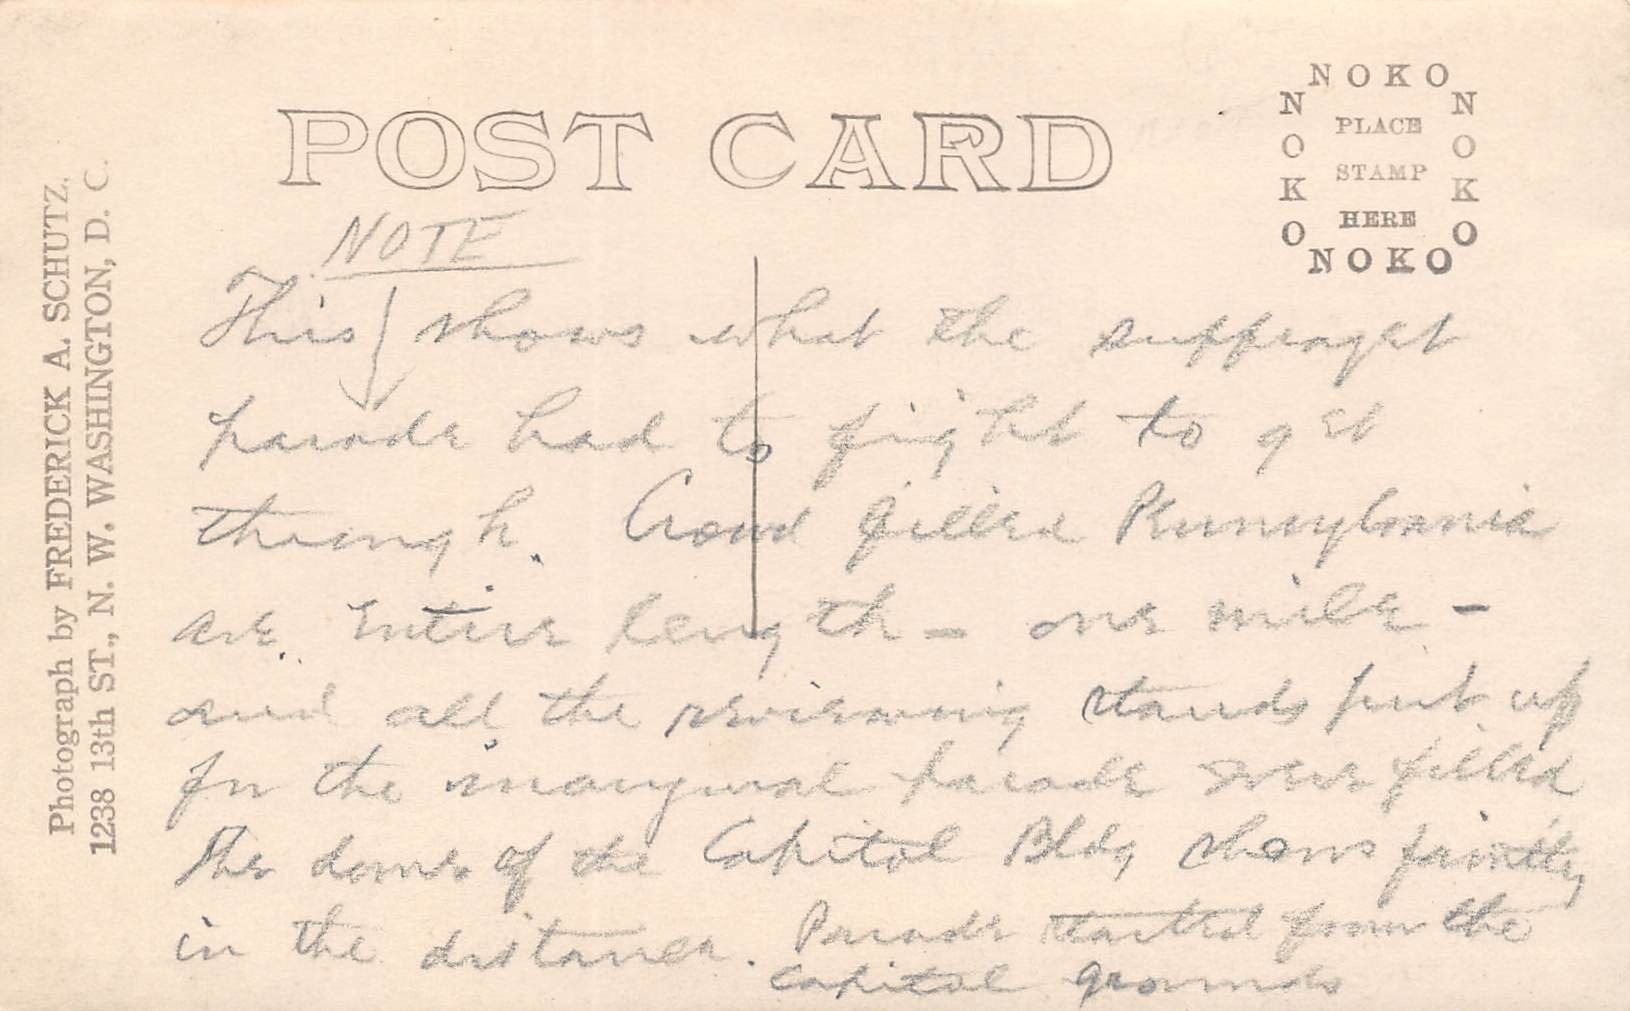 Photograph by FREDERICK A. SCHUTZ,
1238 13th ST., N. W. WASHINGTON, D. C.
POST CARD
NOKO
NOKO
NOKO
NOKO
PLACE
STAMP
HERE
NOTE
This shows what the suffraget
parade had to fight to get
through. Crowd filled Pennsylvania
ave entire length - one mile -
and all the reviewing stands put up
for the inaugural parade were filled
The dome of the Capitol Bldg shows faintly
in the distance. Parade started from the
capitol grounds